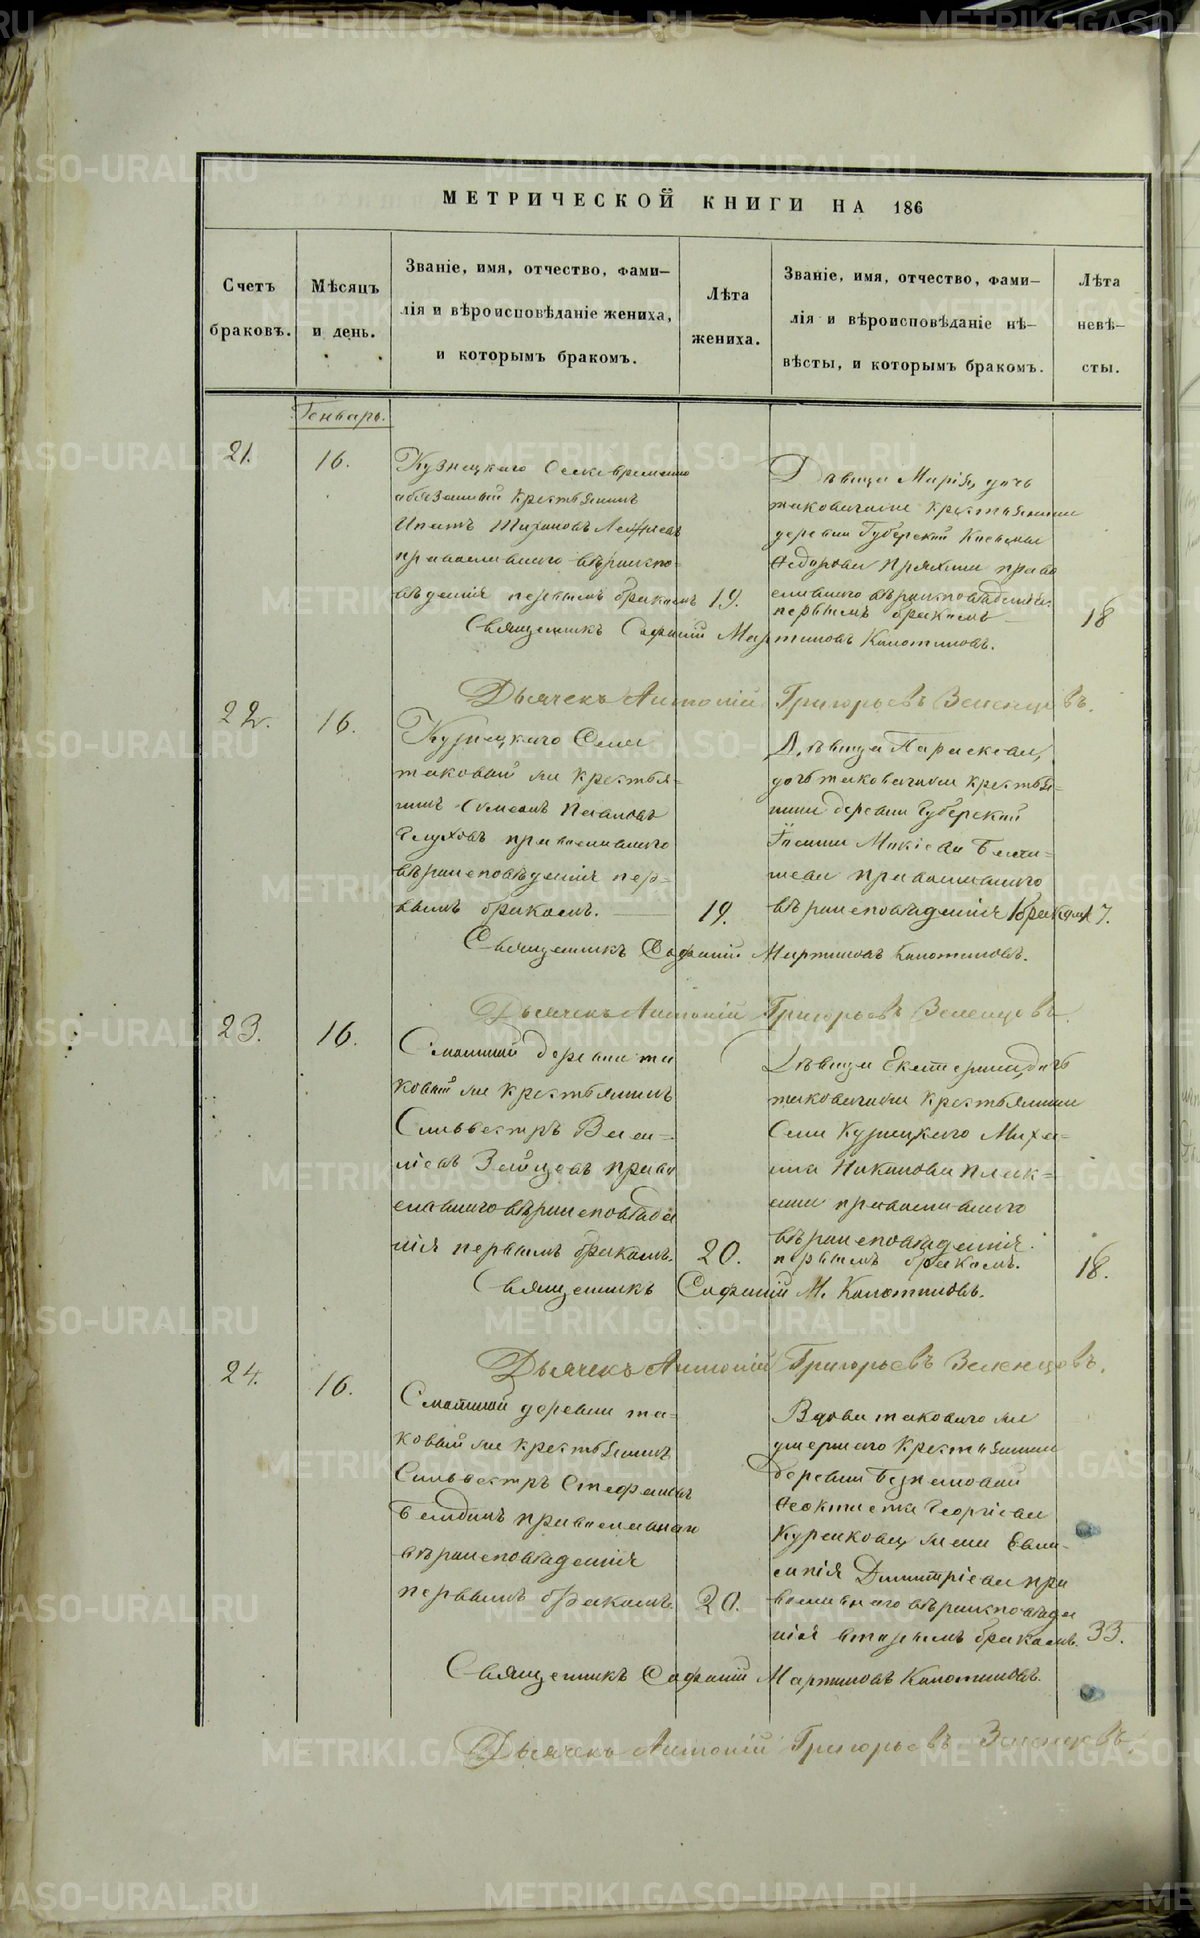 МЕТРИЧЕСКОЙ КНИГИ НА 186
Счетъ браковъ.
Мѣсяцъ и день.
Званіе, имя, отчество, фами-
лія и вѣроисповѣданіе жениха,
и которымъ бракомъ.
Лѣта жениха.
Званіе, имя, отчество, фами-
лія и вѣроисповѣданіе нѣ-
вѣсты, и которымъ бракомъ.
Лѣта
невѣ-
сты.
Генварь.
21.
16.
Кузнецкаго Села временно
обязанный крестьянинъ
Ипатъ Тихоновъ
православнаго вѣроиспо-
вѣданія первымъ бракомъ
19.
Дѣвица Марія, дочь
таковагоже крестьянина
деревни Губерской
Ѳедорова Пряхина право
славнаго вѣроисповѣданія
первымъ бракомъ
18
Священникъ Софоній Мартиновъ Капотиловъ.
Дьячекъ Антоній Григорьевъ Зеленцовъ.
22.
16.
Кузнецкаго Села
таковый же крестья-
нинъ Симеонъ Павловъ
Глуховъ православнаго
вѣроисповѣданія пер-
вымъ бракомъ.
19.
Дѣвица Параскева,
дочь таковагоже крестья-
нина деревни Губерской
Іоанна Мокіева
православнаго
вѣроисповѣданія 1 бракомъ
17.
Священникъ Софоній Мартиновъ Капотиловъ.
Дьячекъ Антоній Григорьевъ Зеленцовъ.
23.
16.
деревни та
ковый же крестьянинъ
Сильвестръ
Зайцовъ право
славнаго вѣроисповѣда
нія первымъ бракомъ.
20.
Дѣвица Екатерина, дочь
таковагоже крестьянина
Села Кузнецкаго Миха-
ила
православнаго
вѣроисповѣданія
первымъ бракомъ.
18.
Священникъ Софоній М. Капотиловъ.
Дьячекъ Антоній Григорьевъ Зеленцовъ.
24.
16.
деревни та-
ковый же крестьянинъ
Сильвестръ Стефановъ
православнаго
вѣроисповѣданія
первымъ бракомъ.
20.
Вдова таковаго же
умершаго крестьянина
деревни
Ѳеоктиста Георгіева
жена Евпи-
Димитріева пра
вославнаго вѣроисповѣда
нія вторымъ бракомъ.
33.
Священникъ Софоній Мартиновъ Капотиловъ.
Дьячекъ Антоній Григорьевъ Зеленцовъ.
METRIKI.GASO-URAL.RU